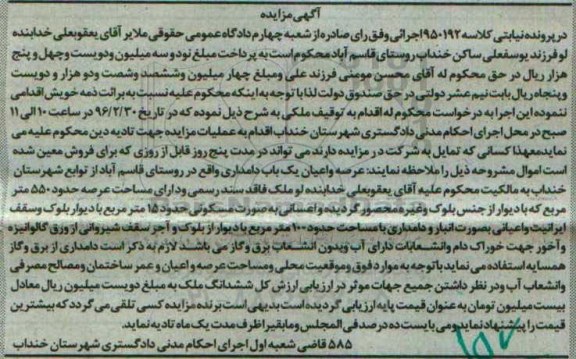 آگهی مزایده
در پرونده نیابتی کلاسه ۹۵۰۱۹۲ اجرائی وفق رای صادره از شعبه چهارم دادگاه عمومی حقوقی ملایر آقای یعقوبعلی خدابنده
لو فرزند یوسفعلی ساکن خنداب روستای قاسم آباد محکوم است به پرداخت مبلغ نود و سه میلیون ودویست وچهل و پنج
هزار ریال در حق محکوم له آقای محسن مومنی فرزند علی ومبلغ چهار میلیون وششصد وشصت ودو هزار و دویست
و پنجاه ریال بابت نیم عشر دولتی در حق صندوق دولت لذا با توجه به اینکه محکوم علیه نسبت به برائت ذمه خویش اقدامی
ننموده این اجرا به درخواست محکوم له اقدام به توقیف ملکی به شرح ذیل نموده که در تاریخ ۹۶/۲/۳۰ در ساعت ۱۰ الی ۱۱
صبح در محل اجرای احکام مدنی دادگستری شهرستان خنداب اقدام به عملیات مزایده جهت تادیه دین محکوم علیه می
نماید معهذا کسانی که تمایل به شرکت در مزایده دارند می تواند در مدت پنج روز قابل از روزی که برای فروش معین شده
است اموال مشروحه ذیل را ملاحظه نمایند: عرصه واعیان یک باب دامداری واقع در روستای قاسم آباد از توابع شهرستان
خنداب به مالکیت محکوم علیه آقای یعقوبعلی خدابنده لو ملک فاقد سند رسمی و دارای مساحت عرصه حدود ۵۵۰ متر
مربع که با دیوار از جنس بلوک وغیره محصور گردیده واعیانی به صورت مسکونی حدود ۱۵ متر مربع با دیوار بلوک وسقف
ایرانیت واعیانی بصورت انبار و دامداری با مساحت حدود ۱۰۰ متر مربع با دیوار از بلوک و آجر سقف شیروانی از ورق گالوانیزه
و آخور جهت خوراک دام وانشعابات دارای آب وبدون انشعاب برق وگاز می باشد. لازم به ذکر است دامداری از برق وگاز
همسایه استفاده می نماید با توجه به موارد فوق وموقعیت محلی ومساحت عرصه واعیان و عمر ساختمان ومصالح مصرفی
وانشعاب آب ودر نظر داشتن جمیع جهات موثر در ارزیابی ارزش کل ششدانگ ملک به مبلغ دویست میلیون ریال معادل
بیست میلیون تومان به عنوان قیمت پایه ارزیابی گردیده است بدیهی است برنده مزایده کسی تلقی می گردد که بیشترین
قیمت را پیشنهاد نماید و می بایست ده درصد فی المجلس و مابقی را ظرف مدت یک ماه تادیه نماید.
۵۸۵ قاضی شعبه اول اجرای احکام مدنی دادگستری شهرستان خنداب